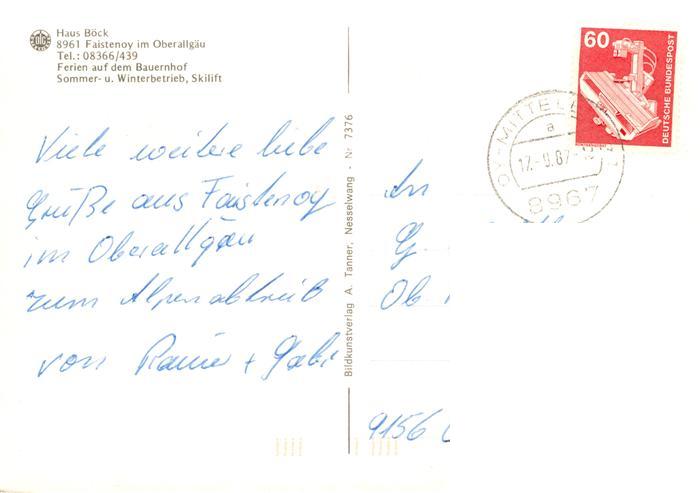 Haus Böck
8961 Faistenoy im Oberallgäu
Tel.: 08366/439
Ferien auf dem Bauernhof
Sommer- u. Winterbetrieb, Skilift
60
DEUTSCHE BUNDESPOST
OY-MITTELB
a
17.-9.87
8967
Viele weitere liebe
Grüße aus Faistenoy
im Oberallgäu
zum Alpenabtrieb
von Rainer + Gabi
Bildkunstverlag A. Tanner, Nesselwang - Nr. 7376
An
G
Ob
9156